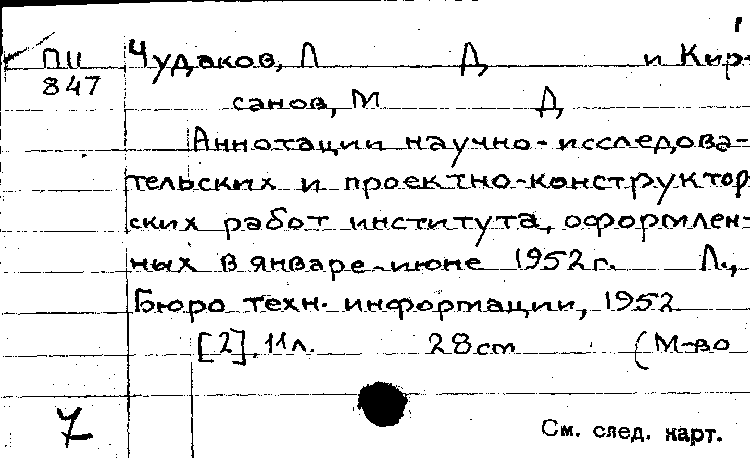 ПII Чудаков, Л Д и Кир-
847
санов, М Д
Аннотации научно-исследова-
тельских и проектно-конструктор
ских работ института, оформлен-
ных в январе-июне 1952 г. Л.,
Бюро техн. информации, 1952
[2], 11 л. 28 cm (М-во
7
См. след. карт.